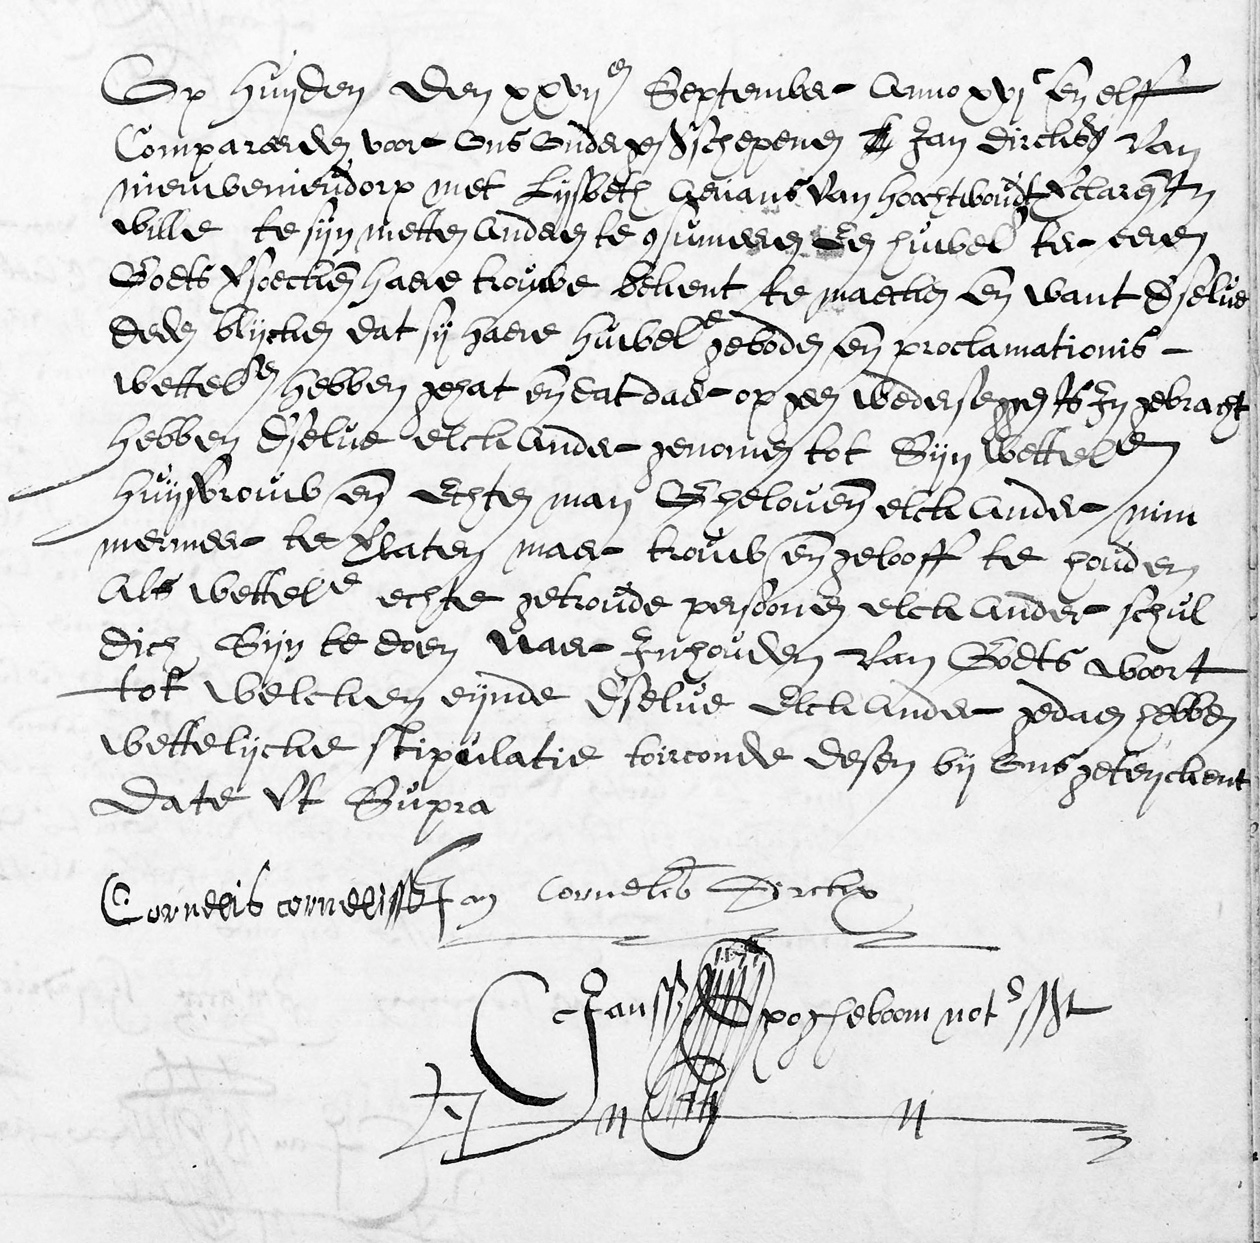 Op huijden den xxvijen September Anno xvjc en elff
Compareerden voor Ons Onderges Schepenen Jan Dircksz van
nieuweniendorp met Lijsbeth Aerians van hoochtwoudt vclaren In
wille te sijn metten anderen te 9sumeren En huwel ter eeren
Godts vsoecken haere trouwe bekent te maecken en want dselve
deden blijcken dat sij haere huwele geboden en proclamationis
wettelen hebben gehat en dat daer op geen wederseggen Is In gebracht
hebben dselve elckander genomen tot Sijn wettele
huijsvrouw en Echten man Gheloven elckander nim
mermeer te vlaten maer trouw en gelooff te houden
als wettele echte getroude persoonen elckander schul
dich Sijn te doen naer Inhouden van Godts woort
tot welcken eijnde dselve Elckander gedaen hebben
wettelijcke stipulatie toirconde desen bij Ons geteijckent
Date Vt Supra
Cornelis cornelissz Jan Cornelis Dirckx
CJanssz not